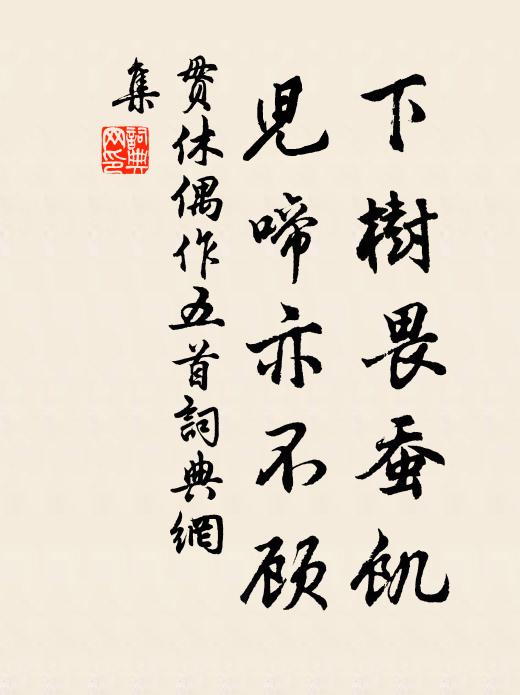 下樹畏蚕飢
児啼亦不顾
贯休偶作五首詞典網
集
詞典
网印